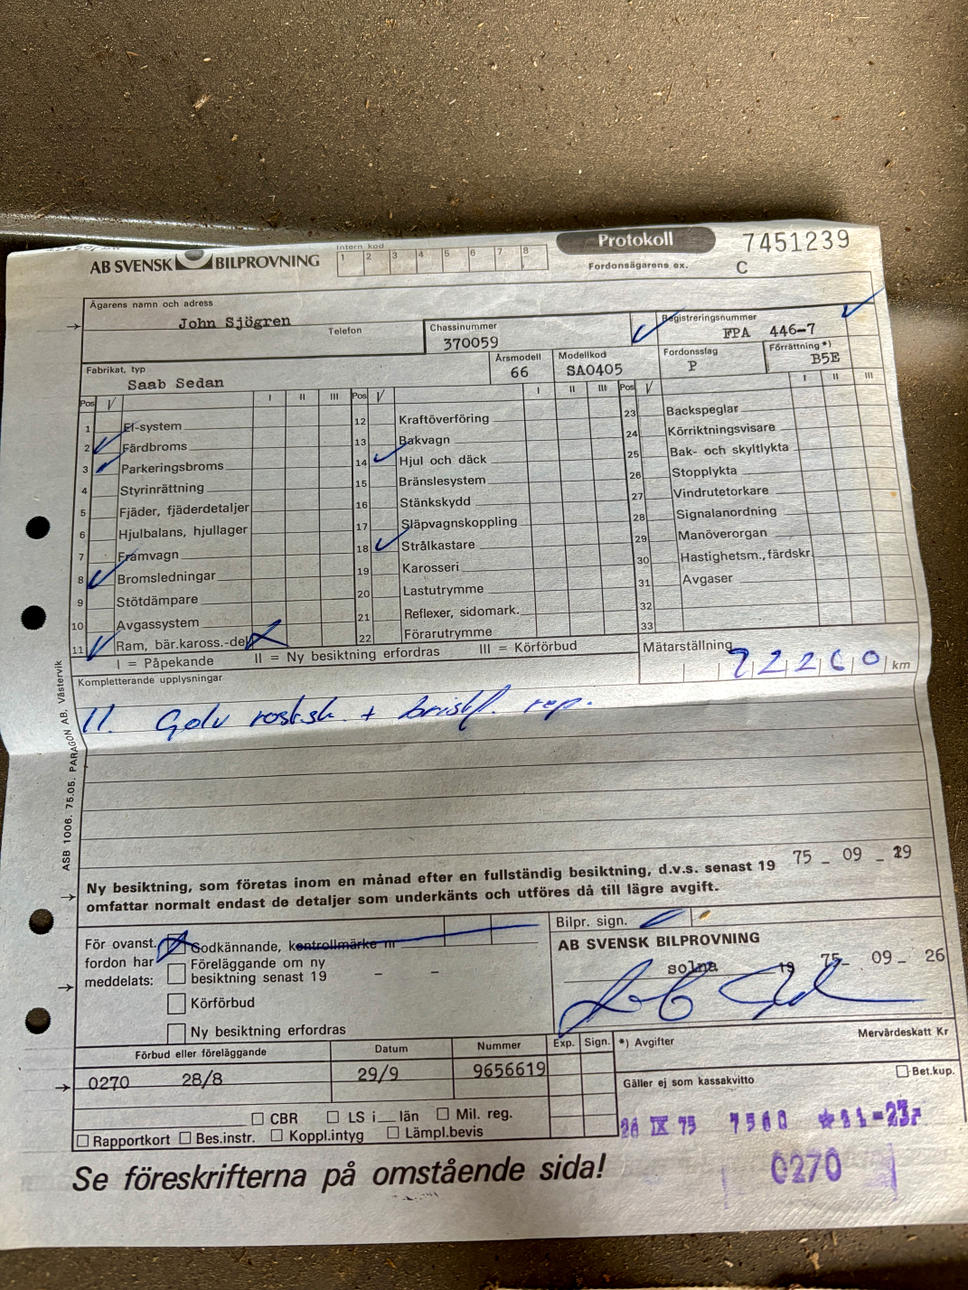 AB SVENSK BILPROVNING
Intern kod
1 2 3 4 5 6 7 8
Protokoll
Fordonsägarens ex.
7451239
C
Ägarens namn och adress
John Sjögren
Telefon
Chassinummer
370059
Registreringsnummer
FPA 446-7
Fabrikat, typ
Saab Sedan
Årsmodell
66
Modellkod
SA0405
Fordonsslag
P
Förrättning *)
B5E
Pos V I II III Pos V I II III Pos V I II III
1 El-system
2 Färdbroms
3 Parkeringsbroms
4 Styrinrättning
5 Fjäder, fjäderdetaljer
6 Hjulbalans, hjullager
7 Framvagn
8 Bromsledningar
9 Stötdämpare
10 Avgassystem
11 Ram, bär.kaross.-del
12 Kraftöverföring
13 Bakvagn
14 Hjul och däck
15 Bränslesystem
16 Stänkskydd
17 Släpvagnskoppling
18 Strålkastare
19 Karosseri
20 Lastutrymme
21 Reflexer, sidomark.
22 Förarutrymme
23 Backspeglar
24 Körriktningsvisare
25 Bak- och skyltlykta
26 Stopplykta
27 Vindrutetorkare
28 Signalanordning
29 Manöverorgan
30 Hastighetsm., färdskr.
31 Avgaser
32
33
I = Påpekande II = Ny besiktning erfordras III = Körförbud
Mätarställning
km
Kompletterande upplysningar
11. Golv rostsk. + rep.
ASB 1006. 75.05. PARAGON AB, Västervik
Ny besiktning, som företas inom en månad efter en fullständig besiktning, d.v.s. senast 19 75 - 09 - 29
omfattar normalt endast de detaljer som underkänts och utföres då till lägre avgift.
För ovanst. fordon har meddelats:
Godkännande, kontrollmärke nr
Föreläggande om ny
besiktning senast 19 - -
Körförbud
Ny besiktning erfordras
Bilpr. sign.
AB SVENSK BILPROVNING
solna 19 75- 09 - 26
Förbud eller föreläggande
0270 28/8
Datum
29/9
Nummer
9656619
Exp. Sign.
*) Avgifter
Mervärdeskatt Kr
Gäller ej som kassakvitto
Bet.kup.
CBR LS i län Mil. reg.
Rapportkort Bes.instr. Koppl.intyg Lämpl.bevis
26 IX 75 7560
0270
Se föreskrifterna på omstående sida!